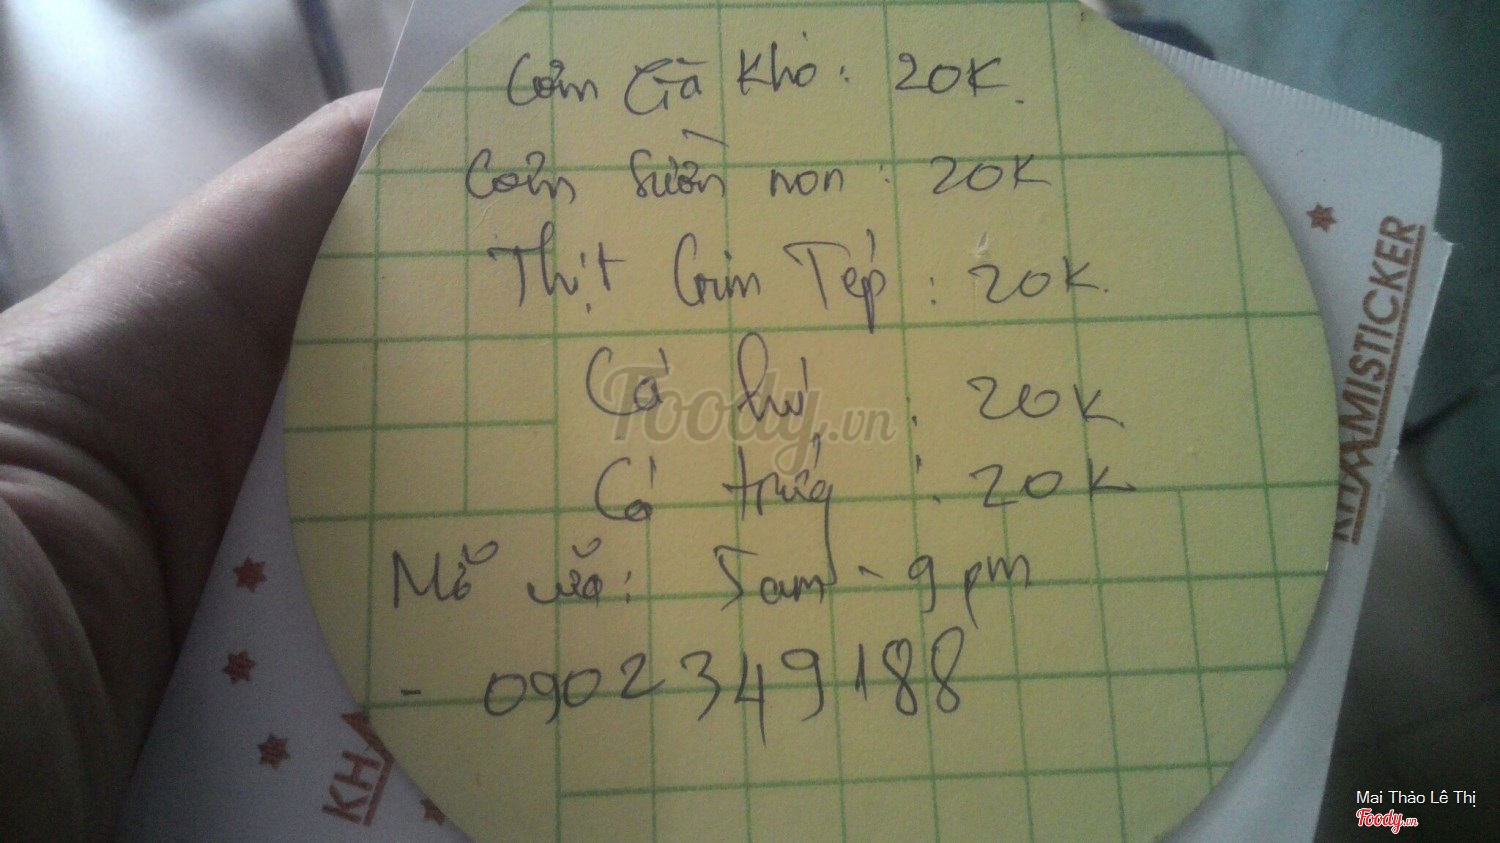 Cơm Gà Kho: 20K.
Cơm Sườn non: 20K
Thịt Grim Tép: 20K.
Cá hú: 20K
Cá trứng: 20K
Mở cửa: 5am - 9pm
- 0902 349 188
KHAMISTICKER
KHA
Foody.vn
Mai Thảo Lê Thị
Foody.vn